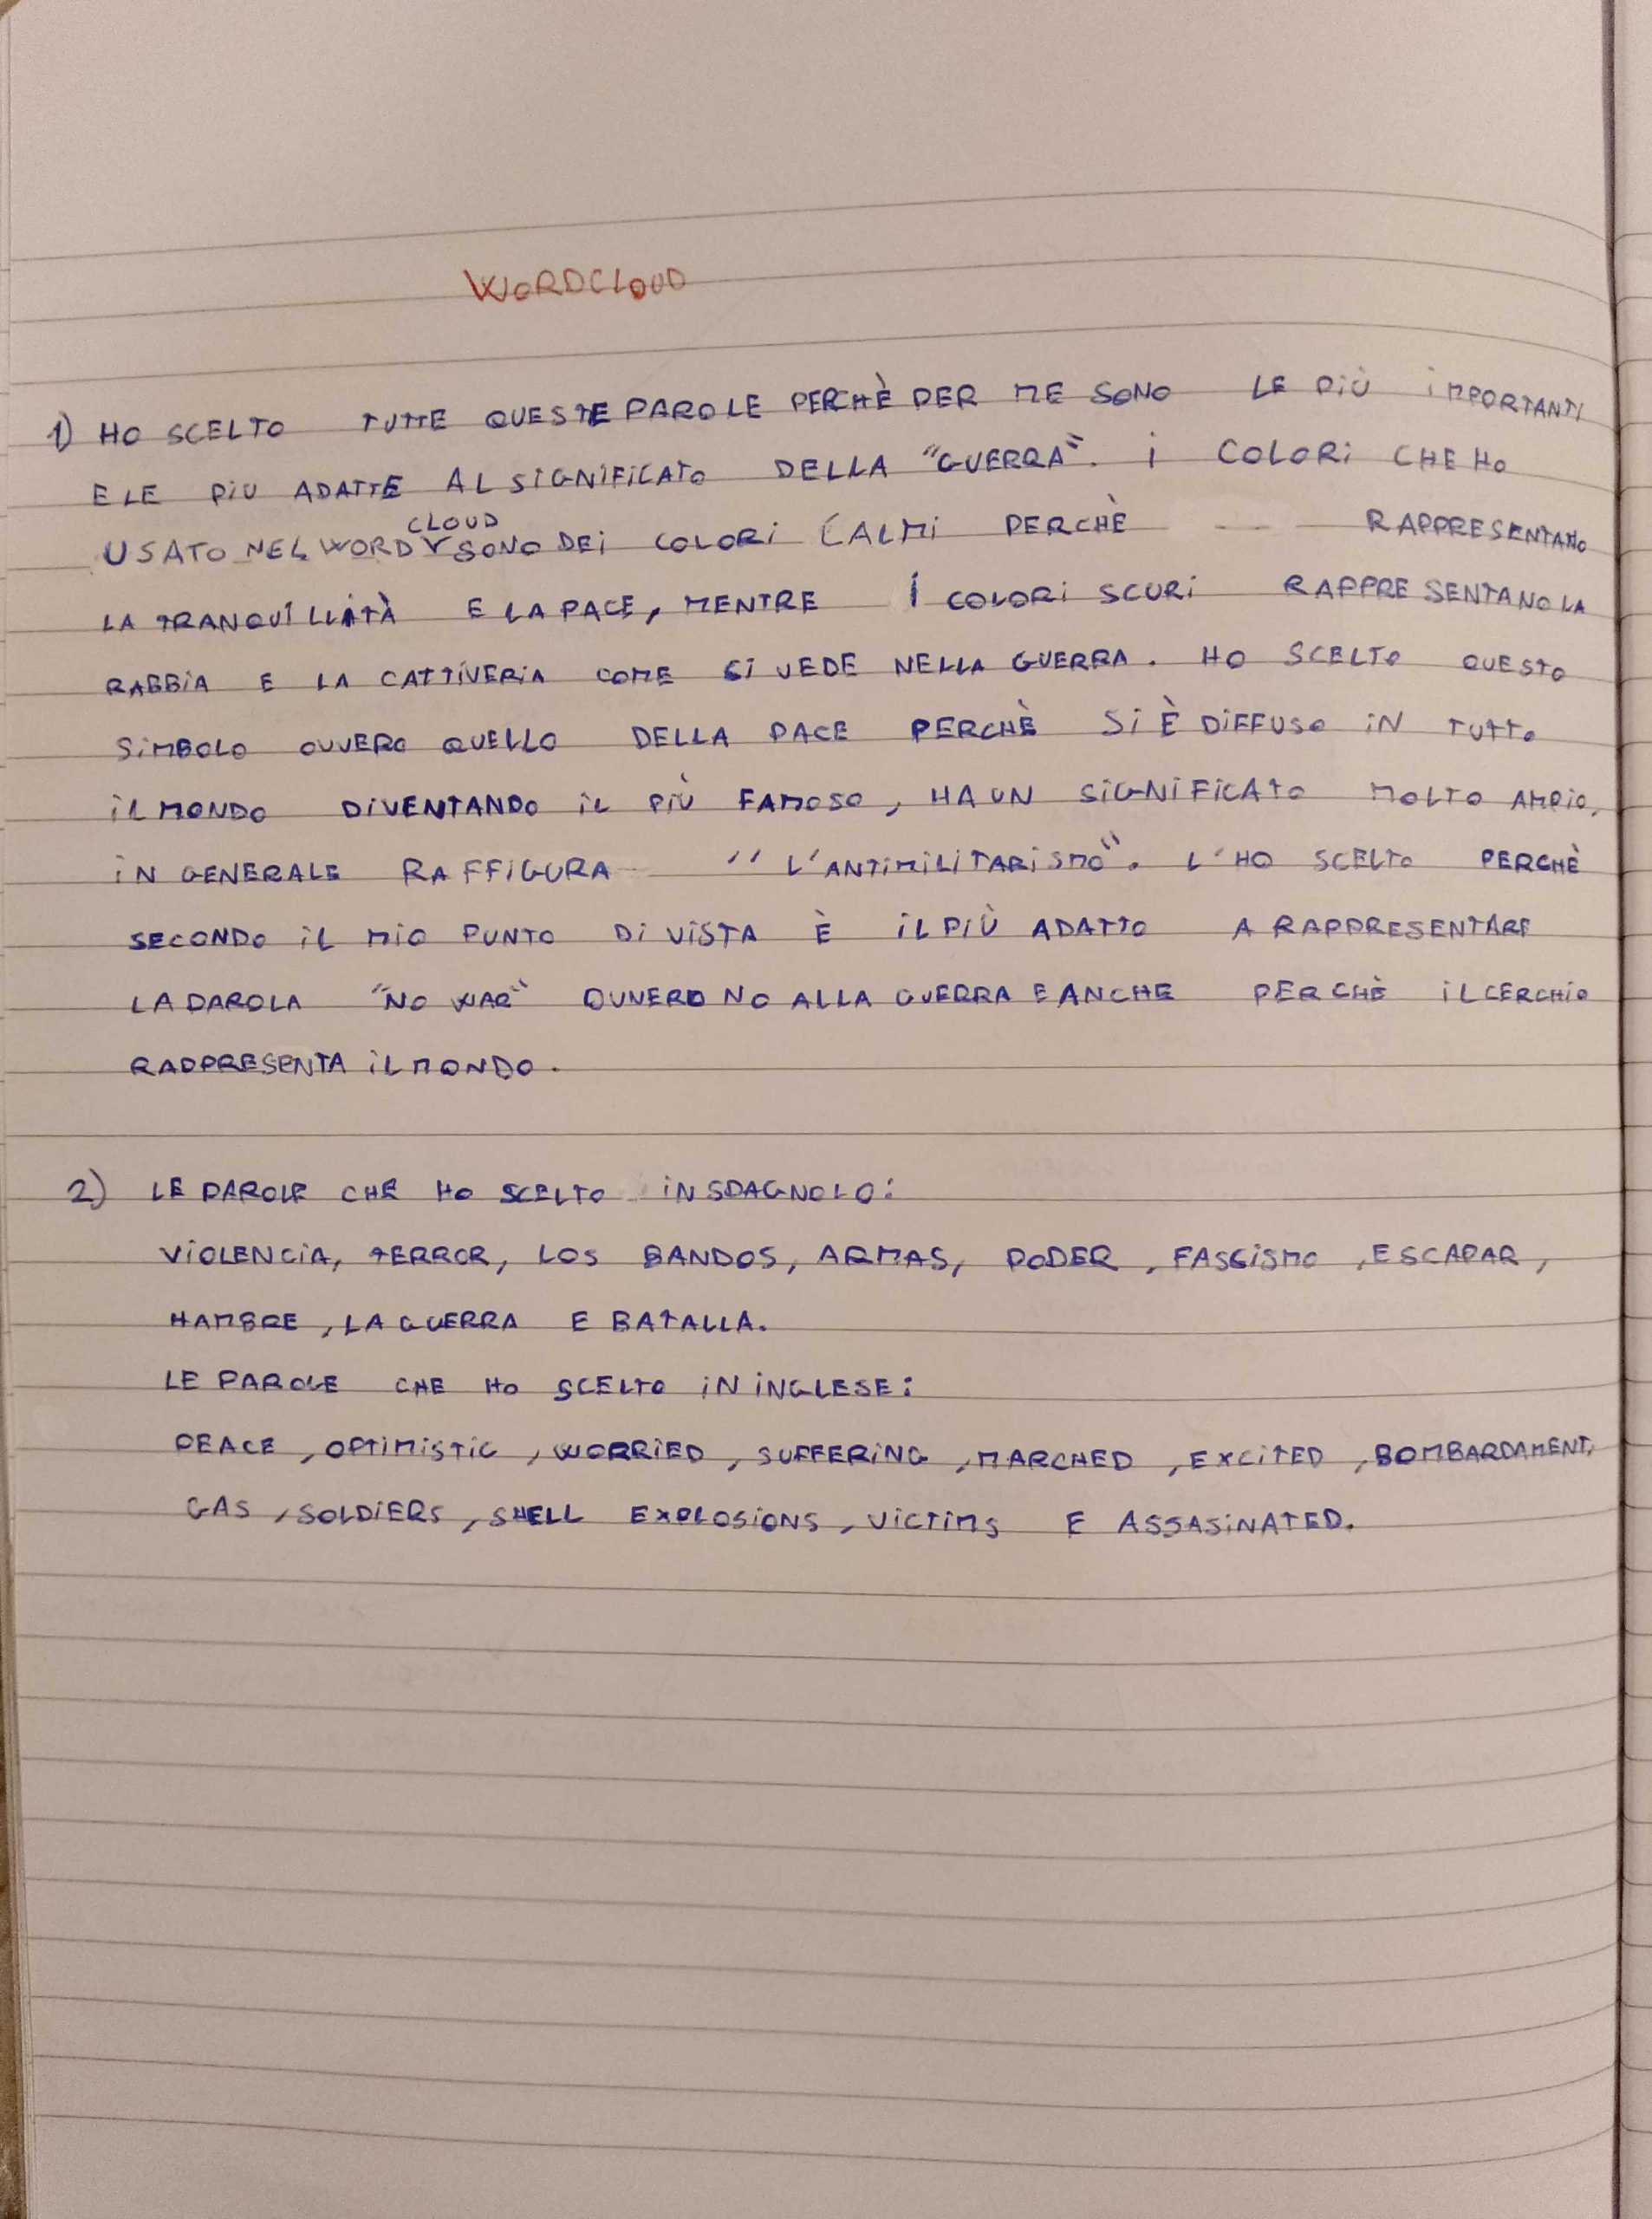 WORDCLOUD
1) HO SCELTO TUTTE QUESTE PAROLE PERCHÈ PER ME SONO LE PIÙ IMPORTANTI
E LE PIU ADATTE AL SIGNIFICATO DELLA "GUERRA". I COLORI CHE HO
USATO NEL WORD CLOUD SONO DEI COLORI CALMI PERCHÈ RAPPRESENTANO
LA TRANQUILLITÀ E LA PACE, MENTRE I COLORI SCURI RAPPRESENTANO LA
RABBIA E LA CATTIVERIA COME SI VEDE NELLA GUERRA. HO SCELTO QUESTO
SIMBOLO OVVERO QUELLO DELLA PACE PERCHÈ SI È DIFFUSO IN TUTTO
IL MONDO DIVENTANDO IL PIÙ FAMOSO, HA UN SIGNIFICATO MOLTO AMPIO,
IN GENERALE RAFFIGURA "L'ANTIMILITARISMO". L'HO SCELTO PERCHÈ
SECONDO IL MIO PUNTO DI VISTA È IL PIÙ ADATTO A RAPPRESENTARE
LA PAROLA "NO WAR" OVVERO NO ALLA GUERRA E ANCHE PERCHÈ IL CERCHIO
RAPPRESENTA IL MONDO.
2) LE PAROLE CHE HO SCELTO IN SPAGNOLO:
VIOLENCIA, TERROR, LOS BANDOS, ARMAS, PODER, FASCISMO, ESCAPAR,
HAMBRE, LA GUERRA E BATALLA.
LE PAROLE CHE HO SCELTO IN INGLESE:
PEACE, OPTIMISTIC, WORRIED, SUFFERING, MARCHED, EXCITED, BOMBARDAMENT,
GAS, SOLDIERS, SHELL EXPLOSIONS, VICTIMS E ASSASINATED.